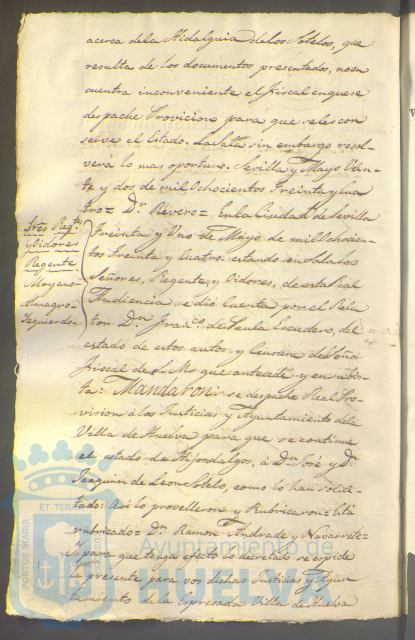 acerca dela Hidalguia delos Sotelos, que
resulta de los documentos presentados, no en
cuentra inconveniente el Fiscal en que se
despache Provicion para que seles con
serve el Estado. La Sala sin embargo resol
verá lo mas oportuno. Sevilla y Mayo Vein-
te y dos de mil Ochocientos Treinta y Cua
tro= Dr. Rivero= En la Ciudad de Sevilla
Tres Regtes
y Oidores
Regente
Moyano
Almagro
Izquierdo
Treinta y Uno de Mayo de mil Ochocien-
tos Treinta y Cuatro: estando en Sala los
Señores, Regente, y Oidores, de esta Real
Audiencia se dió Cuenta por el Rela
tor Dn. Franco. de Paula Escudero, del
estado de estos autos y Censura del Señor
Fiscal de S.M. que antecede y en su vis-
ta: Mandaron: se despache Real Pro-
vision á los Justicias y Ayuntamiento dela
Villa de Huelva para que se continue
el estado de Hijosdalgos, á Dn. José y Dn.
Joaquin de Leon Sotelo, como lo han solici-
tado: Asi lo provelleron y Rubricaron= Está
rubricado= Dn. Ramon Andrade y Navarrete=
Y para que tenga efecto lo decretado se espide
la presente para vos dichas Justicias y Ayun
tamiento de la Espresada Villa de Huelva
PORTUS MARIS
ET TERRE
Ayuntamiento de
HUELVA